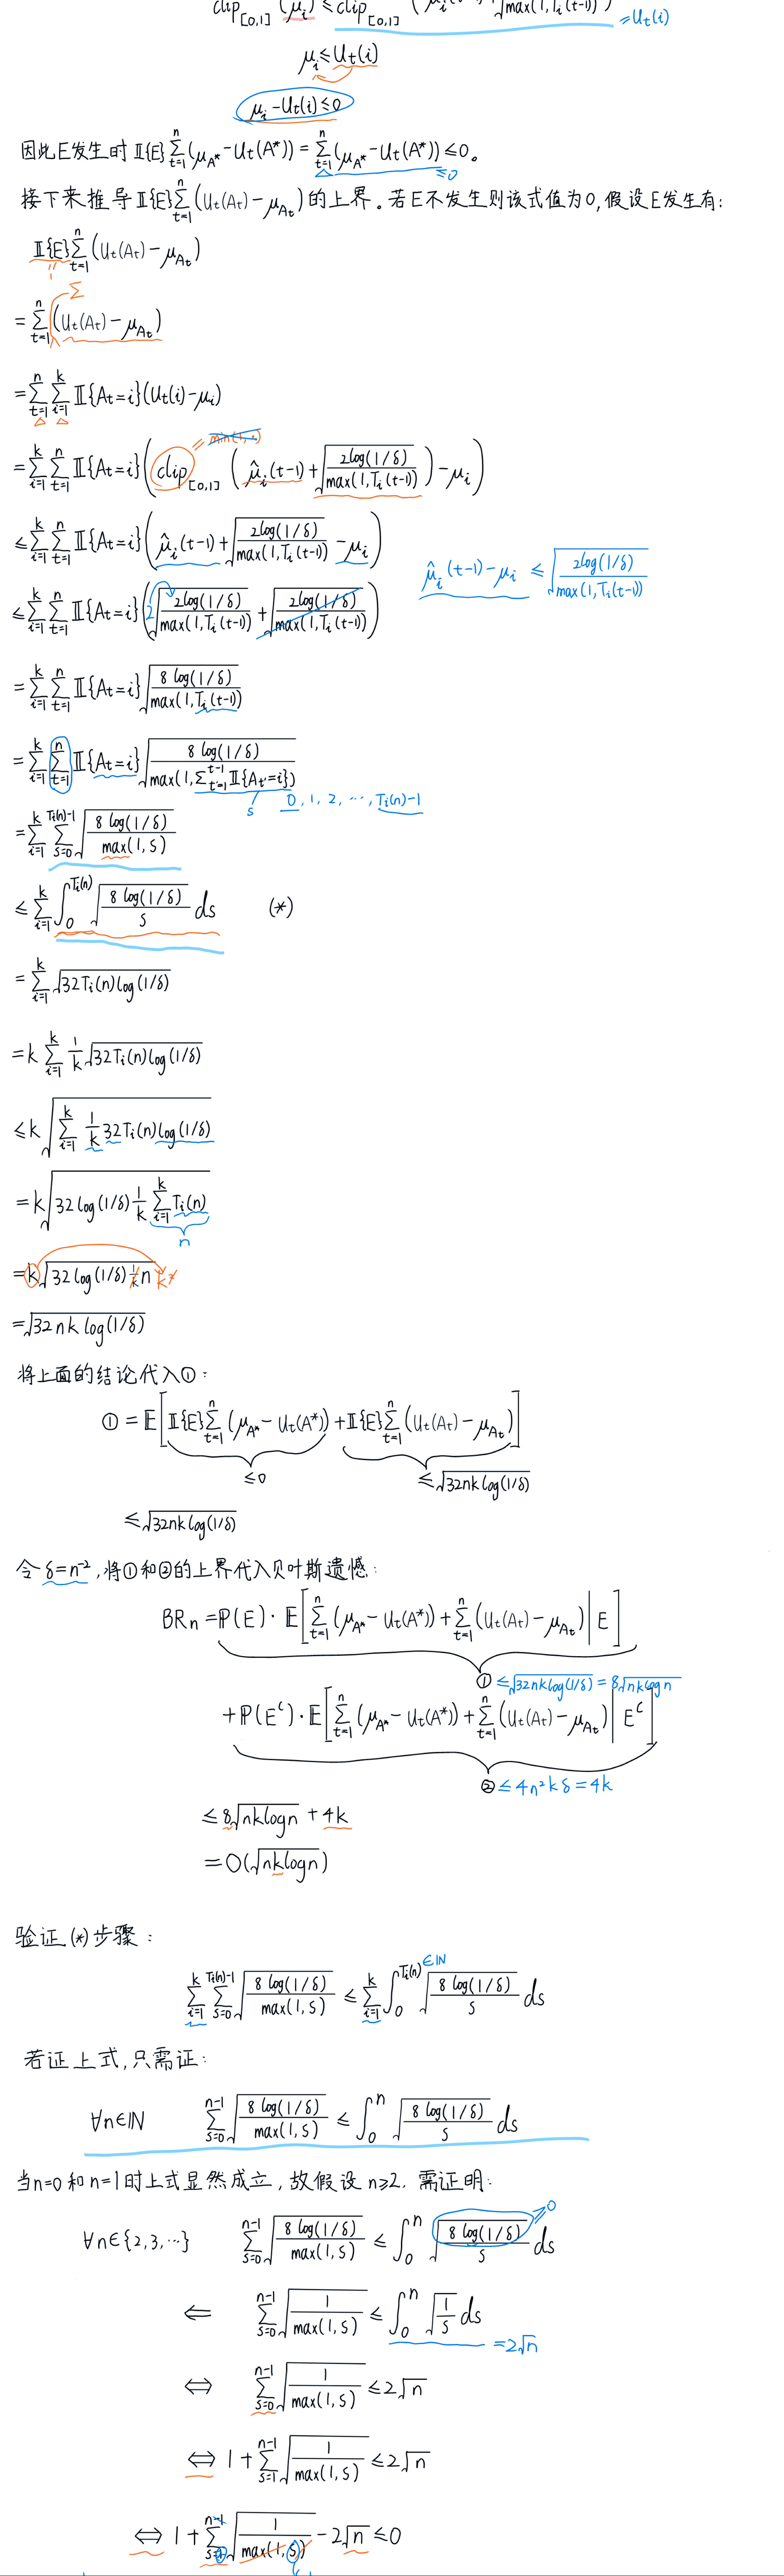 clip_{[0,1]}(μ_i) ≤ clip_{[0,1]}(μ̂_i(t-1) + √(2log(1/δ)/max(1,T_i(t-1)))) = U_t(i)
μ_i ≤ U_t(i)
μ_i - U_t(i) ≤ 0
因此E发生时 𝕀{E}∑_{t=1}^{n}(μ_{A*} - U_t(A*)) = ∑_{t=1}^{n}(μ_{A*} - U_t(A*)) ≤ 0。
≤0
接下来推导 𝕀{E}∑_{t=1}^{n}(U_t(A_t) - μ_{A_t}) 的上界。若E不发生则该式值为0,假设E发生有:
𝕀{E}∑_{t=1}^{n}(U_t(A_t) - μ_{A_t})
1 ∑
= ∑_{t=1}^{n}(U_t(A_t) - μ_{A_t})
= ∑_{t=1}^{n}∑_{i=1}^{k} 𝕀{A_t=i}(U_t(i) - μ_i)
= min(1,·)
= ∑_{i=1}^{k}∑_{t=1}^{n} 𝕀{A_t=i}(clip_{[0,1]}(μ̂_i(t-1) + √(2log(1/δ)/max(1,T_i(t-1)))) - μ_i)
≤ ∑_{i=1}^{k}∑_{t=1}^{n} 𝕀{A_t=i}(μ̂_i(t-1) + √(2log(1/δ)/max(1,T_i(t-1))) - μ_i)
μ̂_i(t-1) - μ_i ≤ √(2log(1/δ)/max(1,T_i(t-1)))
≤ ∑_{i=1}^{k}∑_{t=1}^{n} 𝕀{A_t=i}(2√(2log(1/δ)/max(1,T_i(t-1))) + √(2log(1/δ)/max(1,T_i(t-1))))
= ∑_{i=1}^{k}∑_{t=1}^{n} 𝕀{A_t=i}√(8log(1/δ)/max(1,T_i(t-1)))
= ∑_{i=1}^{k}∑_{t=1}^{n} 𝕀{A_t=i}√(8log(1/δ)/max(1,∑_{t'=1}^{t-1}𝕀{A_{t'}=i}))
s 0, 1, 2, ⋯, T_i(n)-1
= ∑_{i=1}^{k}∑_{s=0}^{T_i(n)-1}√(8log(1/δ)/max(1,s))
≤ ∑_{i=1}^{k}∫_0^{T_i(n)}√(8log(1/δ)/s) ds (*)
= ∑_{i=1}^{k}√(32T_i(n)log(1/δ))
= k∑_{i=1}^{k} 1/k √(32T_i(n)log(1/δ))
≤ k√(∑_{i=1}^{k} 1/k 32T_i(n)log(1/δ))
= k√(32log(1/δ) 1/k ∑_{i=1}^{k}T_i(n))
n
= k√(32log(1/δ) 1/k n) k²
= √(32nk log(1/δ))
将上面的结论代入①:
① = 𝔼[𝕀{E}∑_{t=1}^{n}(μ_{A*} - U_t(A*)) + 𝕀{E}∑_{t=1}^{n}(U_t(A_t) - μ_{A_t})]
≤0 ≤√(32nklog(1/δ))
≤ √(32nklog(1/δ))
令 δ=n^{-2},将①和②的上界代入贝叶斯遗憾:
BR_n = ℙ(E)·𝔼[∑_{t=1}^{n}(μ_{A*} - U_t(A*)) + ∑_{t=1}^{n}(U_t(A_t) - μ_{A_t}) | E]
① ≤ √(32nklog(1/δ)) = 8√(nklogn)
+ ℙ(E^c)·𝔼[∑_{t=1}^{n}(μ_{A*} - U_t(A*)) + ∑_{t=1}^{n}(U_t(A_t) - μ_{A_t}) | E^c]
② ≤ 4n²kδ = 4k
≤ 8√(nklogn) + 4k
= O(√(nklogn))
验证(*)步骤:
∑_{i=1}^{k}∑_{s=0}^{T_i(n)-1}√(8log(1/δ)/max(1,s)) ≤ ∑_{i=1}^{k}∫_0^{T_i(n)∈ℕ}√(8log(1/δ)/s) ds
若证上式,只需证:
∀n∈ℕ ∑_{s=0}^{n-1}√(8log(1/δ)/max(1,s)) ≤ ∫_0^n√(8log(1/δ)/s) ds
当n=0和n=1时上式显然成立,故假设n≥2. 需证明:
∀n∈{2,3,⋯} ∑_{s=0}^{n-1}√(8log(1/δ)/max(1,s)) ≤ ∫_0^n√(8log(1/δ)/s) ds ≥0
⇐ ∑_{s=0}^{n-1}√(1/max(1,s)) ≤ ∫_0^n√(1/s) ds = 2√n
⇔ ∑_{s=0}^{n-1}√(1/max(1,s)) ≤ 2√n
⇔ 1 + ∑_{s=1}^{n-1}√(1/max(1,s)) ≤ 2√n
⇔ 1 + ∑_{s=1}^{n-1}√(1/max(1,s)) - 2√n ≤ 0